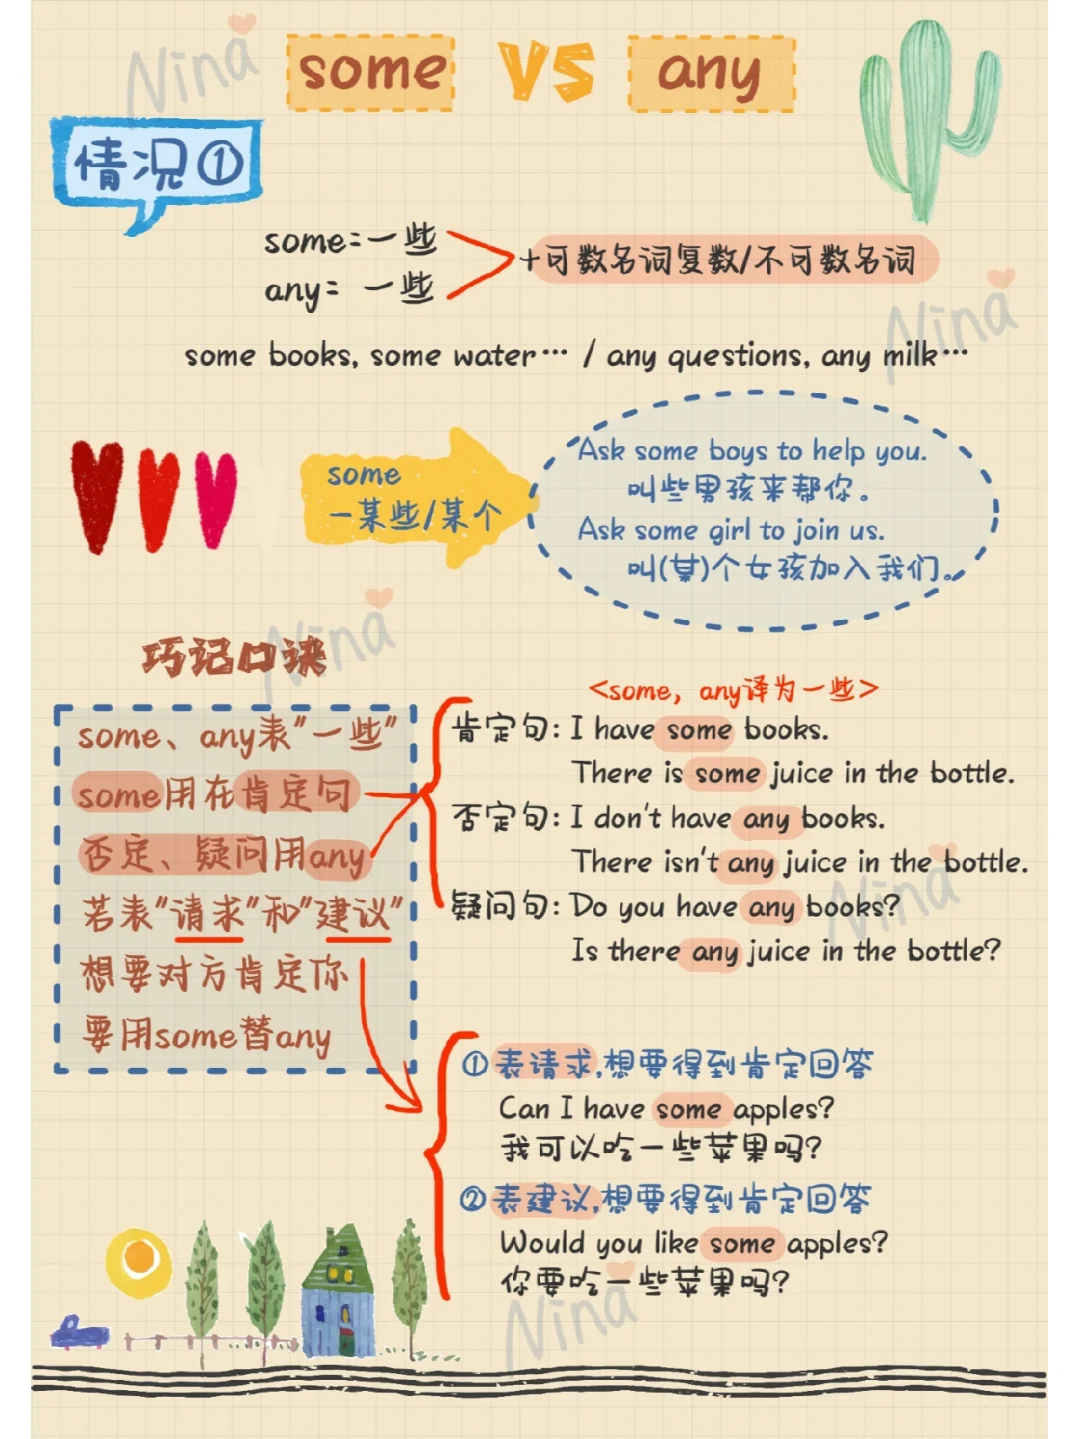 some VS any
Nina
情况①
some=一些
any= 一些
+可数名词复数/不可数名词
Nina
some books, some water… / any questions, any milk…
some
一某些/某个
Ask some boys to help you.
叫些男孩来帮你。
Ask some girl to join us.
叫(某)个女孩加入我们。
Nina
巧记口诀
some、any表"一些"
some用在肯定句
否定、疑问用any
若表"请求"和"建议"
想要对方肯定你
要用some替any
<some, any译为一些>
肯定句: I have some books.
There is some juice in the bottle.
否定句: I don't have any books.
There isn't any juice in the bottle.
疑问句: Do you have any books?
Is there any juice in the bottle?
Nina
①表请求,想要得到肯定回答
Can I have some apples?
我可以吃一些苹果吗?
②表建议,想要得到肯定回答
Would you like some apples?
你要吃一些苹果吗?
Nina